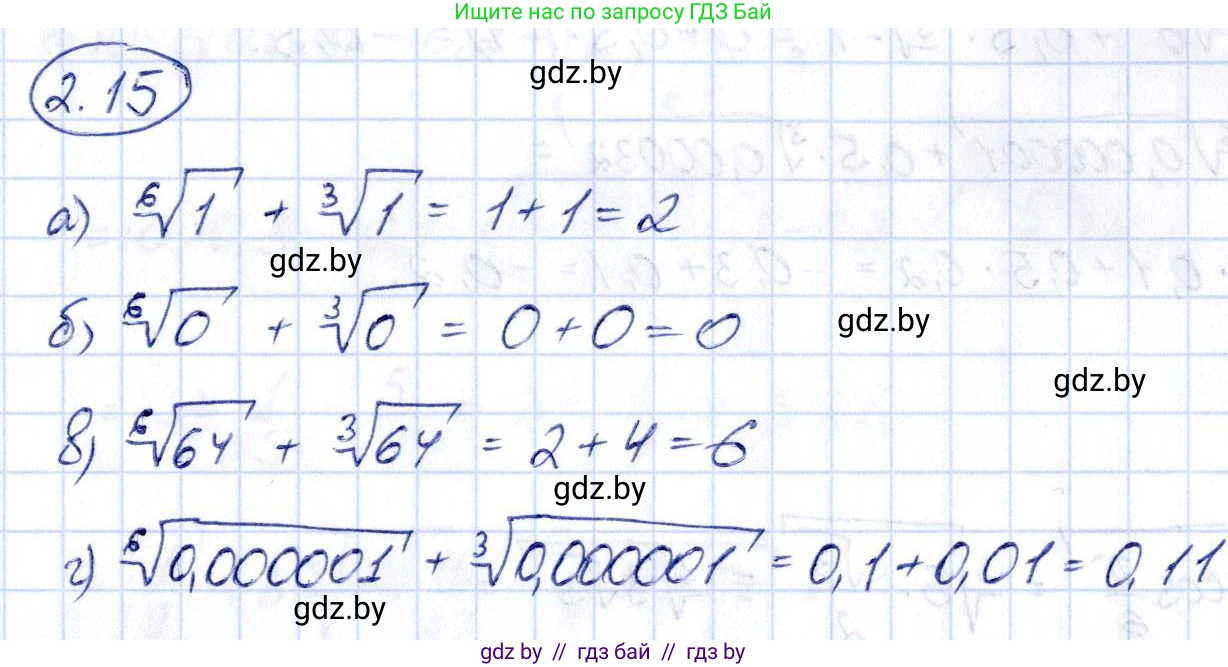 Ищите нас по запросу ГДЗ Бай
2.15
gdz.by
а) ⁶√1 + ³√1 = 1 + 1 = 2
gdz.by
б) ⁶√0 + ³√0 = 0 + 0 = 0
gdz.by
gdz.by
в) ⁶√64 + ³√64 = 2 + 4 = 6
gdz.by
г) ⁶√0,000001 + ³√0,000001 = 0,1 + 0,01 = 0,11
gdz.by
gdz by // гдз бай // gdz by